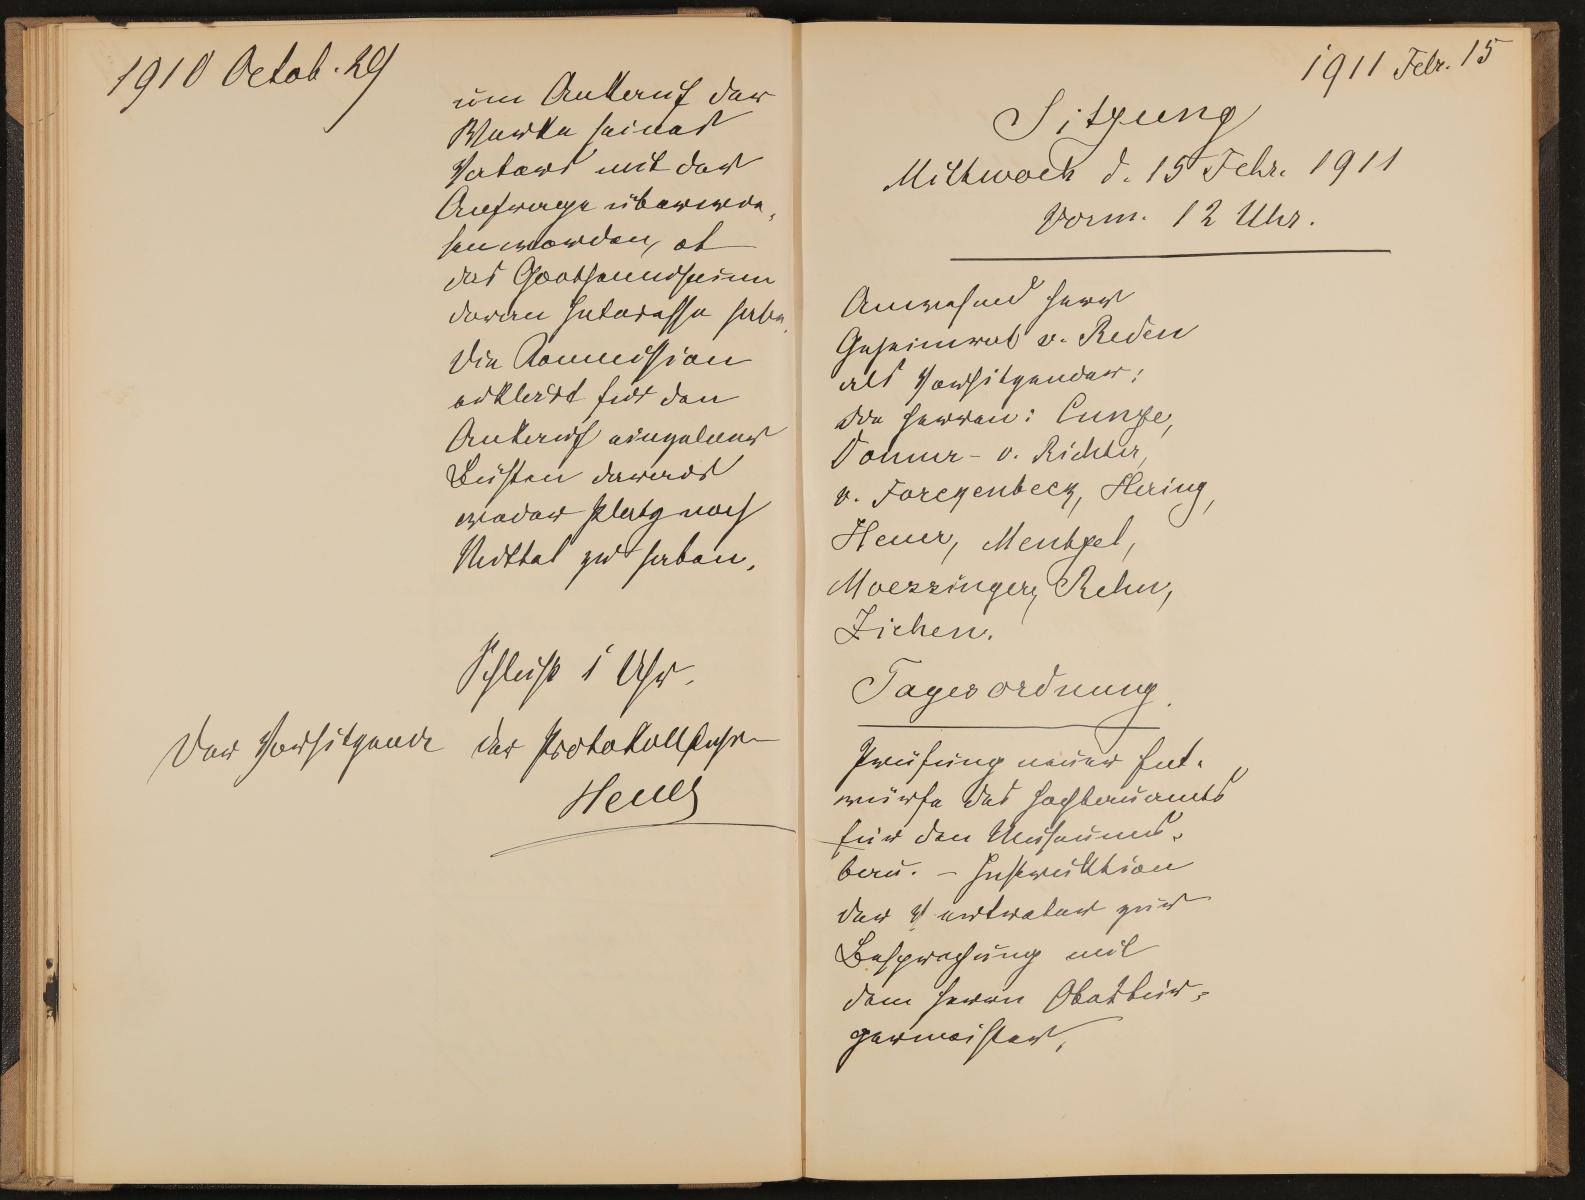 1910 Octob. 29
um Ankauf der
Werke seines
Vaters mit der
Anfrage überwie-
sen worden, ob
das Goethemuseum
daran Interesse habe.
Die Kommission
erklärt für den
Ankauf einzelner
Büsten daraus
weder Platz noch
Mittel zu haben.
Schluß 1 Uhr.
Der Vorsitzende der Protokollführ
Heuer
1911 Febr. 15
Sitzung
Mittwoch d. 15 Febr. 1911
Vorm. 12 Uhr.
Anwesend Herr
Geheimrat v. Reden
als Vorsitzender:
die Herren: Cunze,
Donner - v. Richter,
v. Forckenbeck, Hering,
Heuer, Mentzel,
Moessinger, Rehn,
Ziehen.
Tagesordnung.
Prüfung neuer Ent-
würfe des Hochbauamts
für den Museums-
bau. - Instruktion
der Vertreter zur
Besprechung mit
dem Herrn Oberbür-
germeister.